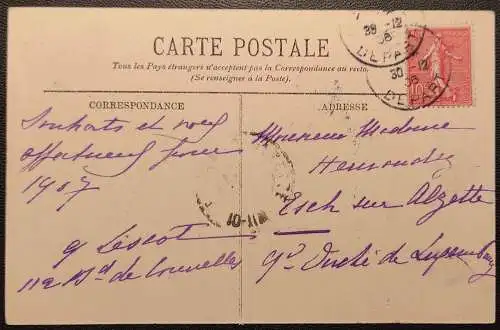 CARTE POSTALE
Tous les Pays étrangers n'acceptent pas la Correspondance au recto
(Se renseigner à la Poste).
CORRESPONDANCE
Souhaits et
affectueux pour
1907
G Lescot
112 Bd de Courcelles
ADRESSE
Monsieur Madame
Esch sur Alzette
Gd Duché de Luxembourg
30 -12
06
DEPART
30 -12
06
DEPART
10